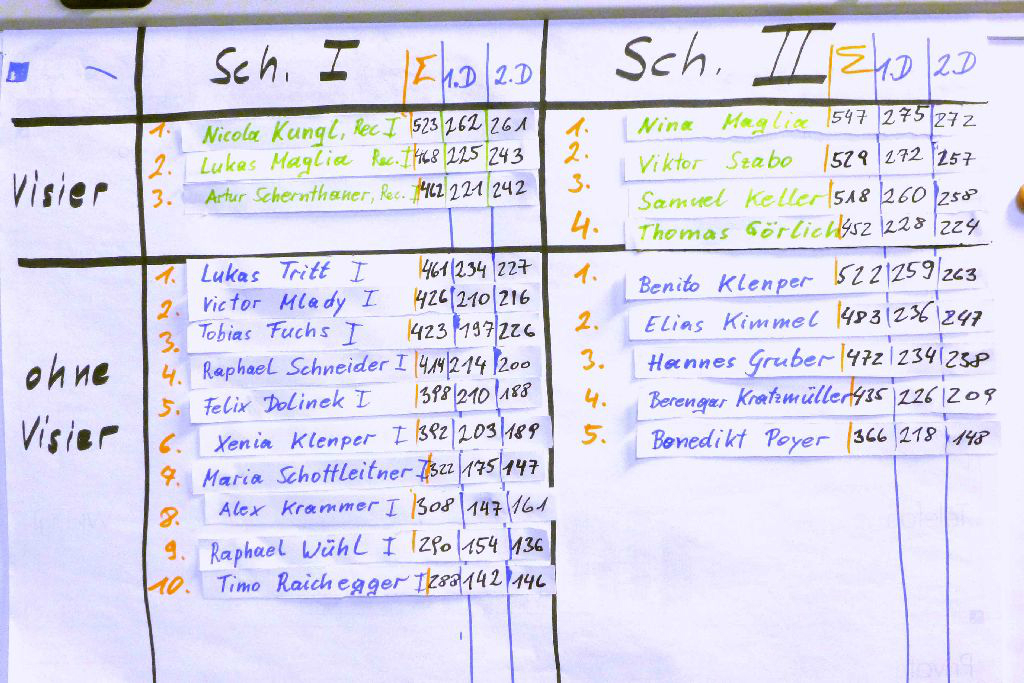 Sch. I Σ 1.D 2.D
Sch. II Σ 1.D 2.D
Visier
1. Nicola Kungl, Rec I 523 262 261
2. Lukas Maglia Rec. I 468 225 243
3. Artur Schernthaner, Rec. I 462 221 242
1. Nina Maglia 547 275 272
2. Viktor Szabo 529 272 257
3. Samuel Keller 518 260 258
4. Thomas Görlich 452 228 224
ohne
Visier
1. Lukas Tritt I 461 234 227
2. Victor Mlady I 426 210 216
3. Tobias Fuchs I 423 197 226
4. Raphael Schneider I 414 214 200
5. Felix Dolinek I 398 210 188
6. Xenia Klenper I 392 203 189
7. Maria Schottleitner I 322 175 147
8. Alex Krammer I 308 147 161
9. Raphael Wühl I 290 154 136
10. Timo Raichegger I 288 142 146
1. Benito Klenper 522 259 263
2. Elias Kimmel 483 236 247
3. Hannes Gruber 472 234 238
4. Berengar Kratzmüller 435 226 209
5. Benedikt Poyer 366 218 148